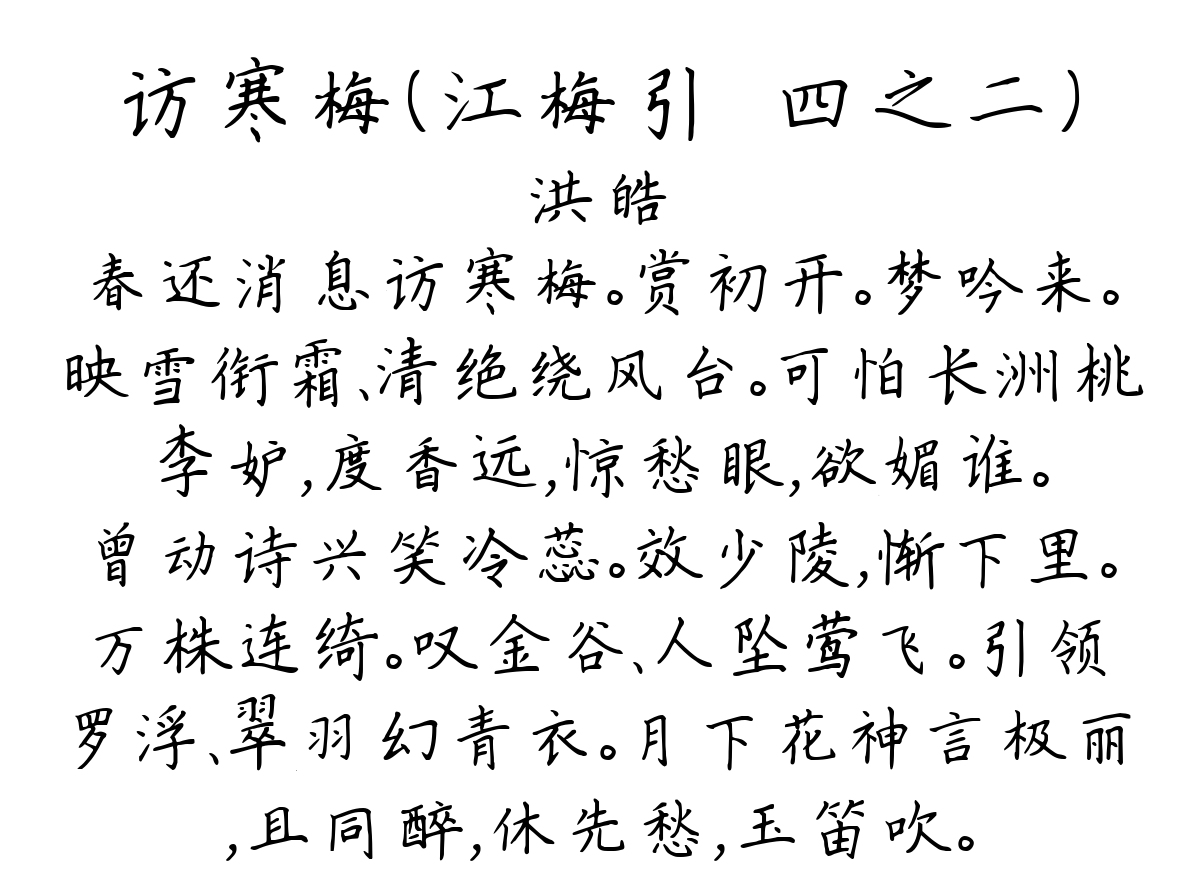 访寒梅(江梅引 四之二)
洪皓
春还消息访寒梅。赏初开。梦吟来。
映雪衔霜、清绝绕风台。可怕长洲桃
李妒,度香远,惊愁眼,欲媚谁。
曾动诗兴笑冷蕊。效少陵,惭下里。
万株连绮。叹金谷、人坠莺飞。引领
罗浮、翠羽幻青衣。月下花神言极丽
,且同醉,休先愁,玉笛吹。